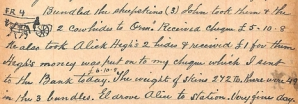 ER 4 Bundled the sheepskins (3) John took them & the
2 Cowhides to Orroi Received cheque £5-10-8
He also took Alick Hegh's 2 hides & received £1 for them
Hegh's money was put on to my cheque which I sent
6-10-8
to the Bank today. The weight of Skins 272 lb. There were 49
in the 3 bundles. El drove Alic to Station. Very fine day